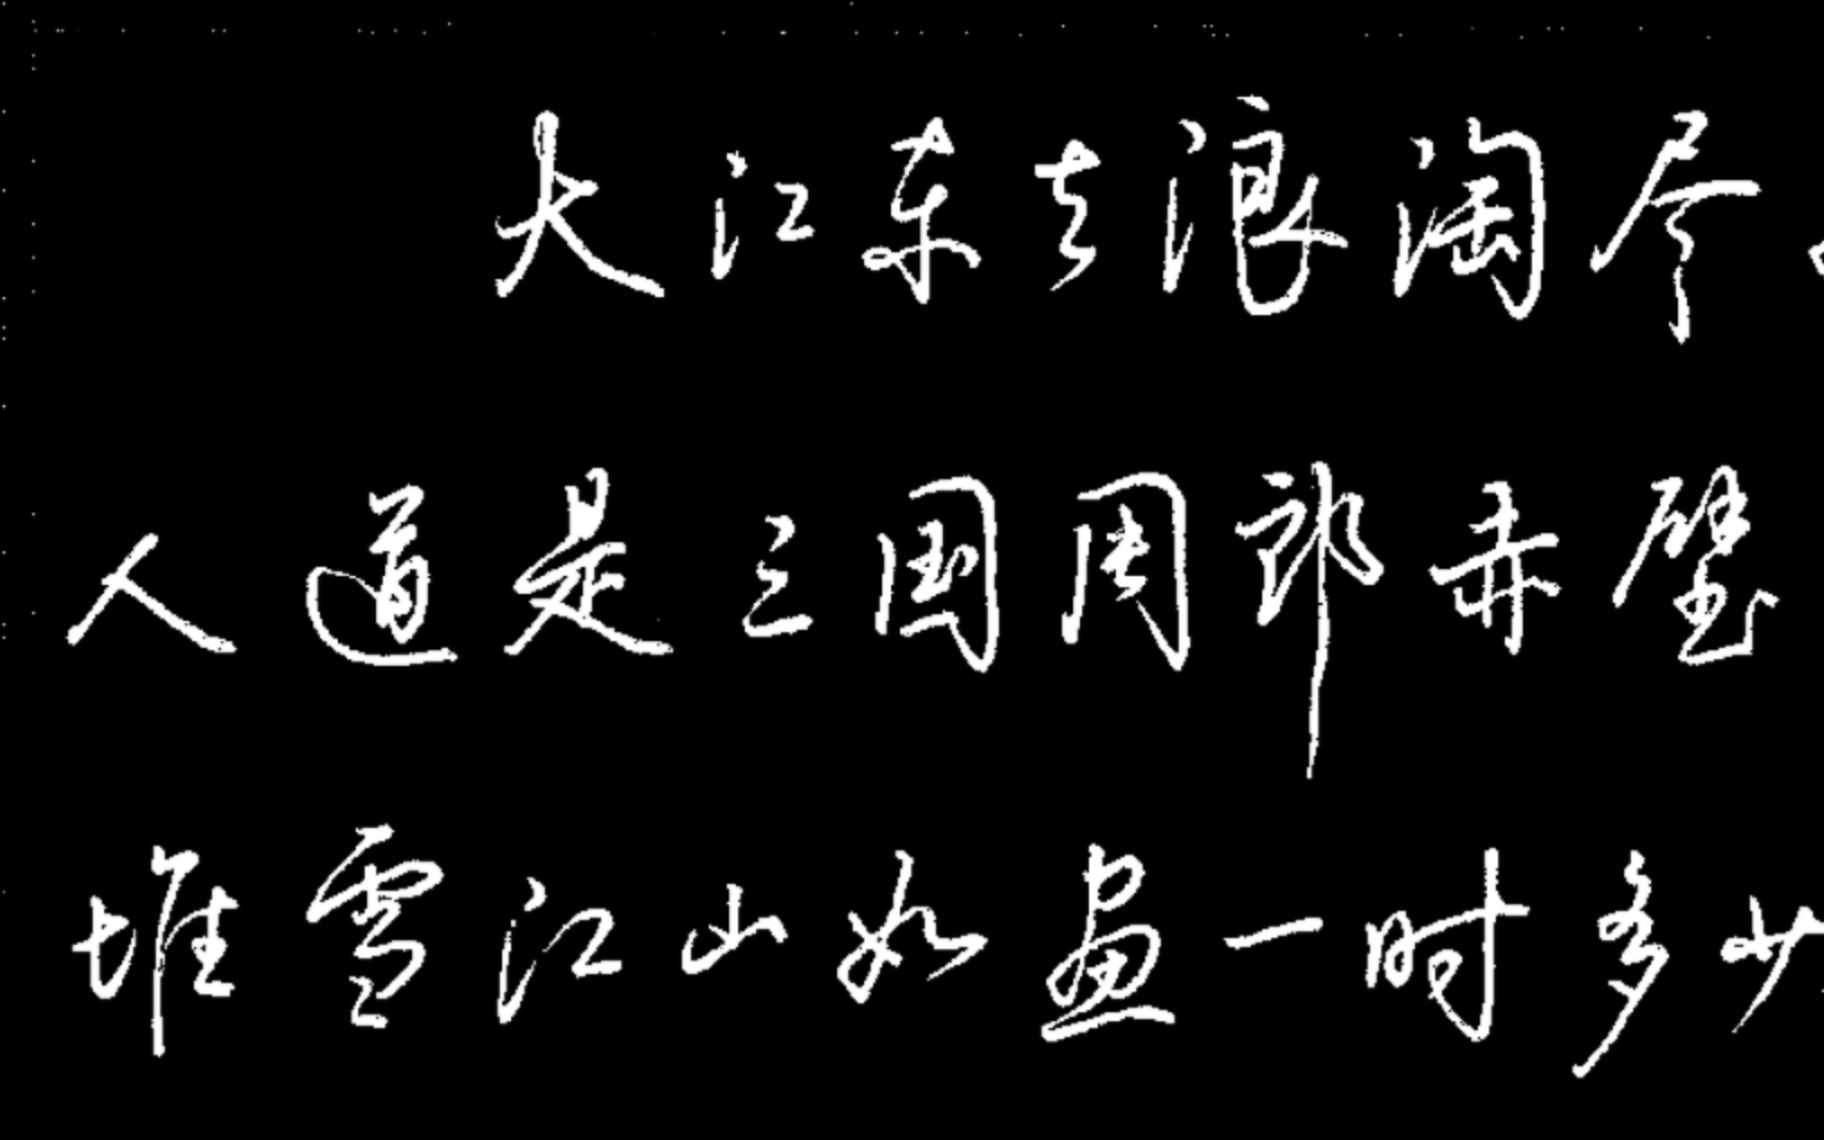 大江东去浪淘尽
人道是三国周郎赤壁
堆雪江山如画一时多少